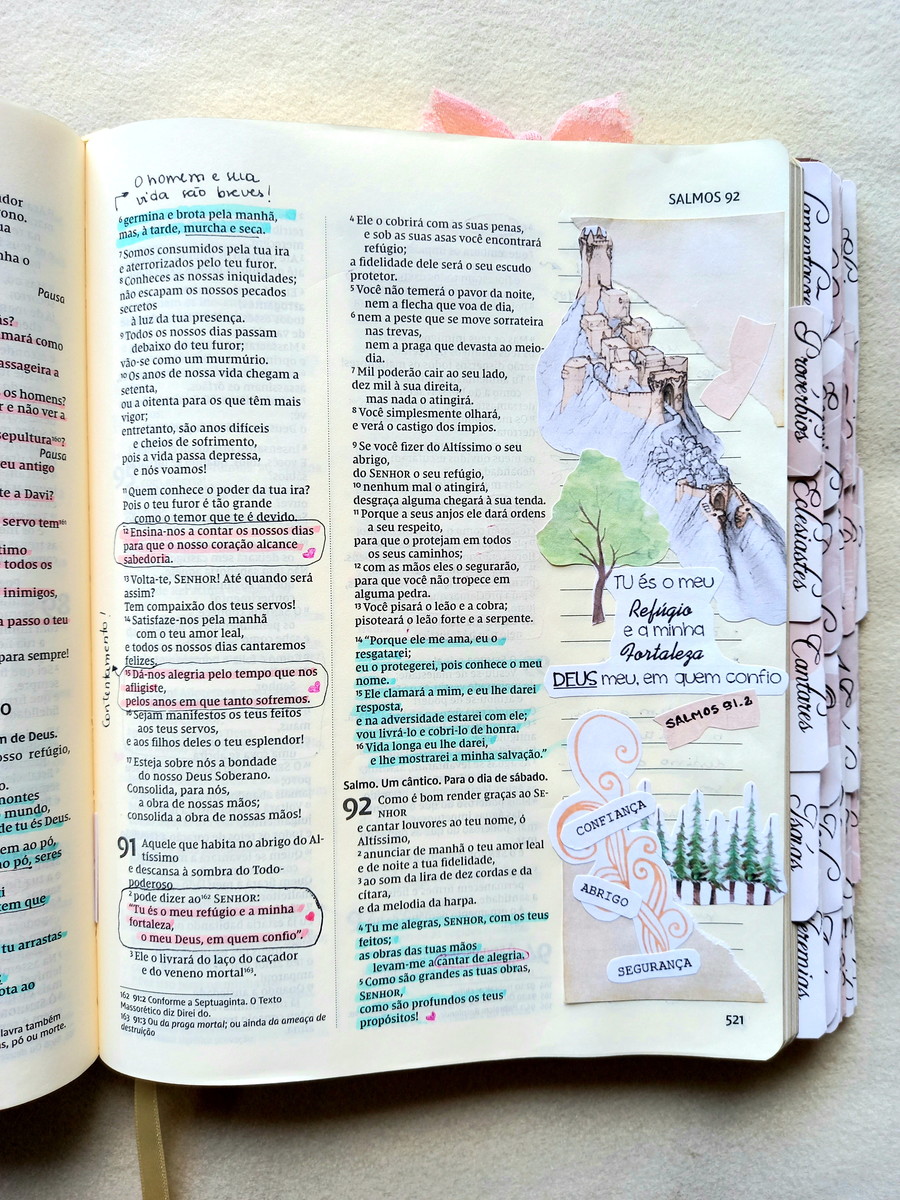 ador
ono.
ua
nha o
Pausa
as?
mará como
assageira a
os homens?
r e não ver a
sepultura¹⁶⁰?
Pausa
eu antigo
te a Davi?
servo tem¹⁶¹
timo
todos os
inimigos,
a passo o teu
para sempre!
O
n de Deus.
osso refúgio,
o.
montes
mundo,
de tu és Deus.
em ao pó,
ao pó, seres
i
tem que
tu arrastas
ota ao
lavra também
as, pó ou morte.
O homem e sua
vida são breves!
⁶ germina e brota pela manhã,
mas, à tarde, murcha e seca.
⁷ Somos consumidos pela tua ira
e aterrorizados pelo teu furor.
⁸ Conheces as nossas iniquidades;
não escapam os nossos pecados
secretos
à luz da tua presença.
⁹ Todos os nossos dias passam
debaixo do teu furor;
vão-se como um murmúrio.
¹⁰ Os anos de nossa vida chegam a
setenta,
ou a oitenta para os que têm mais
vigor;
entretanto, são anos difíceis
e cheios de sofrimento,
pois a vida passa depressa,
e nós voamos!
¹¹ Quem conhece o poder da tua ira?
Pois o teu furor é tão grande
como o temor que te é devido.
¹² Ensina-nos a contar os nossos dias
para que o nosso coração alcance
sabedoria.
¹³ Volta-te, SENHOR! Até quando será
assim?
Tem compaixão dos teus servos!
¹⁴ Satisfaze-nos pela manhã
com o teu amor leal,
e todos os nossos dias cantaremos
felizes.
Contentamento!
¹⁵ Dá-nos alegria pelo tempo que nos
afligiste,
pelos anos em que tanto sofremos.
¹⁶ Sejam manifestos os teus feitos
aos teus servos,
e aos filhos deles o teu esplendor!
¹⁷ Esteja sobre nós a bondade
do nosso Deus Soberano.
Consolida, para nós,
a obra de nossas mãos;
consolida a obra de nossas mãos!
91 Aquele que habita no abrigo do Al-
tíssimo
e descansa à sombra do Todo-
poderoso
² pode dizer ao¹⁶² SENHOR:
“Tu és o meu refúgio e a minha
fortaleza,
o meu Deus, em quem confio”.
³ Ele o livrará do laço do caçador
e do veneno mortal¹⁶³.
162 91:2 Conforme a Septuaginta. O Texto
Massorético diz Direi do.
163 91:3 Ou da praga mortal; ou ainda da ameaça de
destruição
SALMOS 92
⁴ Ele o cobrirá com as suas penas,
e sob as suas asas você encontrará
refúgio;
a fidelidade dele será o seu escudo
protetor.
⁵ Você não temerá o pavor da noite,
nem a flecha que voa de dia,
⁶ nem a peste que se move sorrateira
nas trevas,
nem a praga que devasta ao meio-
dia.
⁷ Mil poderão cair ao seu lado,
dez mil à sua direita,
mas nada o atingirá.
⁸ Você simplesmente olhará,
e verá o castigo dos ímpios.
⁹ Se você fizer do Altíssimo o seu
abrigo,
do SENHOR o seu refúgio,
¹⁰ nenhum mal o atingirá,
desgraça alguma chegará à sua tenda.
¹¹ Porque a seus anjos ele dará ordens
a seu respeito,
para que o protejam em todos
os seus caminhos;
¹² com as mãos eles o segurarão,
para que você não tropece em
alguma pedra.
¹³ Você pisará o leão e a cobra;
pisoteará o leão forte e a serpente.
¹⁴ “Porque ele me ama, eu o
resgatarei;
eu o protegerei, pois conhece o meu
nome.
¹⁵ Ele clamará a mim, e eu lhe darei
resposta,
e na adversidade estarei com ele;
vou livrá-lo e cobri-lo de honra.
¹⁶ Vida longa eu lhe darei,
e lhe mostrarei a minha salvação.”
Salmo. Um cântico. Para o dia de sábado.
92 Como é bom render graças ao SE-
NHOR
e cantar louvores ao teu nome, ó
Altíssimo,
² anunciar de manhã o teu amor leal
e de noite a tua fidelidade,
³ ao som da lira de dez cordas e da
cítara,
e da melodia da harpa.
⁴ Tu me alegras, SENHOR, com os teus
feitos;
as obras das tuas mãos
levam-me a cantar de alegria.
⁵ Como são grandes as tuas obras,
SENHOR,
como são profundos os teus
propósitos!
TU és o meu
Refúgio
e a minha
Fortaleza
DEUS meu, em quem confio
SALMOS 91.2
CONFIANÇA
ABRIGO
SEGURANÇA
521
Provérbios
Eclesiastes
Cantares
Isaías
Jeremias